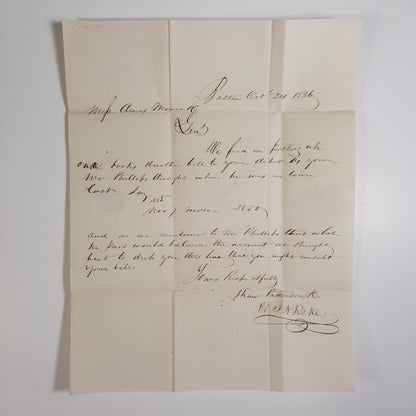 Boston Oct. 24 1836
Mess Amos
Gent
We find on posting up
our books another bill to your debit as your
Mr Phillips thought when he was in town
Cost Say
8.00
And as we mentioned to Mr Phillips that what
he paid would balance the account we thought
best to drop you this line that you might consult
your bills
Yours Respectfully
Shaw Patterson & Co